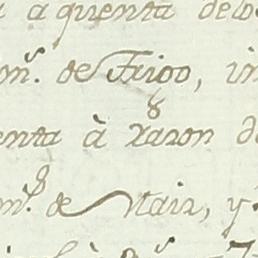 à quenta delo
m.^s de Trigo, in
enta à razon de
m.^s de Maiz, y